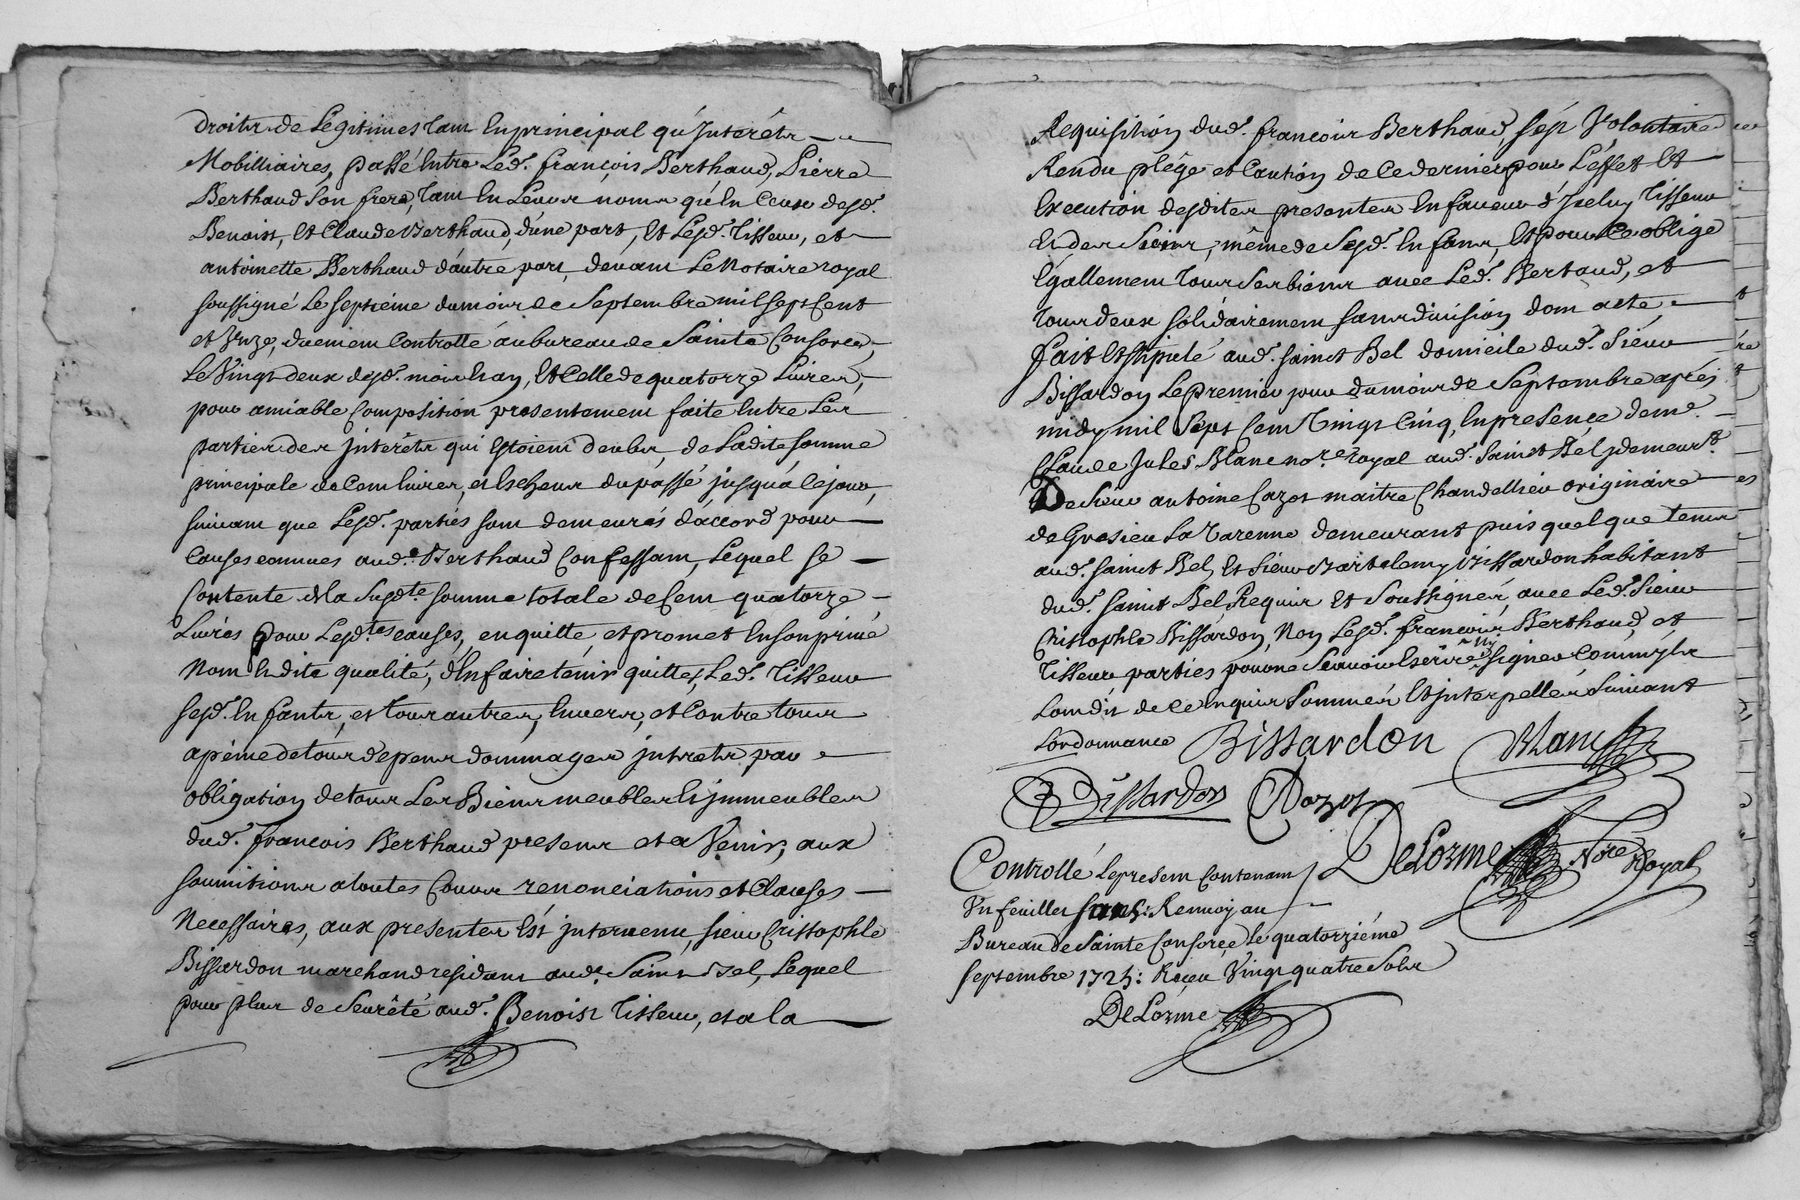 droits de Legitimes tant En principal qu'Interêts
Mobilliaires, passé Entre Led. françois Berthaud, Pierre
Berthaud Son frere, tant En Leurs noms qu'En Ceux desd.
Benoist, Et Claude Berthaud, d'une part, Et Lesd. Tisseur, et
antoinette Berthaud d'autre part, devant Le Notaire royal
soussigné Le septiéme du mois de Septembre mil sept Cent
et Unze, duement Controllé au bureau de Sainte Consorce,
Le Vingt deux desd. mois & an, Et Celle de quatorze Livres,
pour amiable Composition presentement faite Entre Les
parties des jnterêts qui Etoient deubs, de Ladite somme
principale de Cent livres, et Escheus du passé jusqu'a Ce jour,
suivant que Lesd. parties sont demeurés d'accord pour
Causes connues aud. Berthaud Confessant, Lequel se
Contente de la Susdte. somme totale de Cent quatorze
Livres pour Lesdtes causes, en quitte, et promet En son privé
Nom Endite qualité, d'En faire tenir quittes, Led. Tisseur
sesd. Enfants, et tous autres, Envers, et Contre tous
a péine de tous depens dommages jnterets par
obligation de tous Les Biens meubles & jmmeubles
dud. françois Berthaud presens et a Venir, aux
soumitions a toutes Cours renonciations et Clauses
Necessaires, aux presentes Est jntervenu, sieur Cristophle
Bissardon marchand residant aud. Saint Bel, Lequel
pour plus de Seurêté aud. Benoist Tisseur, et a la
Requisition dud. françois Berthaud, s'est Volontairement
Rendu plége et Caution de Ce dernier pour L'effet Et
Execution desdites presentes En faveur d'Iceluy Tisseur
Et des Siens, même de Sesd. Enfans, Et pour Ce oblige
Egallement Tous Ses biens avec Led. Bertaud, et
Tous deux solidairement sans division, dont acte,
fait Et stipulé aud. sainct Bel domicile dud. Sieur
Bissardon Le premier jour du mois de Septembre aprés
midy mil Sept Cent Vingt Cinq, En presence de me.
Claude Jules Blanc nore. royal aud. Sainct Bel y demeurt.
De Sieur antoine Cazot maitre Chandellier originaire
de Gresieu La Varenne demeurant puis quelque tems
aud. sainct Bel, Et Sieur Bartelemy Bissardon habitant
dud. sainct Bel Requis Et Soussignés, avec Led. Sieur
Christophle Bissardon, Non Lesd. françois Berthaud, et
Tisseur parties pour ne Scavoir Escrire ny signer Comm'yls
L'ont dit de Ce Enquis Sommés Et jnterpellés Suivant
Lordonnance Bissardon Blanc
B Bissardon Cazot
DeLorme Nore Royal
Controllé Le present Contenant
Un feuillet sans: Renvoy au
Bureau de Sainte Consorce Le quatorziéme
septembre 1725: Reçeu Vingt quatre Sols
DeLorme